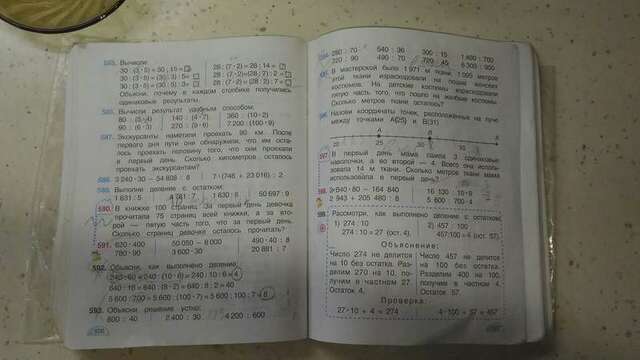 585. Вычисли:
30 : (3·5) = 30 : 15 =
30 : (3·5) = (30 : 3) : 5 =
30 : (3·5) = (30 : 5) : 3 =
28 : (7·2) = 28 : 14 =
28 : (7·2) = (28 : 7) : 2 =
28 : (7·2) = (28 : 2) : 7 =
Объясни, почему в каждом столбике получились
одинаковые результаты.
586. Вычисли результат удобным способом:
80 : (8·4) 140 : (4·7) 360 : (10·2)
90 : (6·3) 270 : (9·6) 7 200 : (100·9)
587. Экскурсанты наметили проехать 90 км. После
первого дня пути они обнаружили, что им оста-
лось проехать половину того, что они проехали
в первый день. Сколько километров осталось
проехать экскурсантам?
588. 3 240·30 − 54 808 : 8 7·(748 + 23 016) : 2
589. Выполни деление с остатком:
1 631 : 5 1 630 : 6 50 697 : 9
590. В книжке 100 страниц. За первый день девочка
прочитала 75 страниц всей книжки, а за вто-
рой — пятую часть того, что за первый день.
Сколько страниц девочке осталось прочитать?
591. 620·400 50 050 − 8 000 490·40 : 8
780·90 3 600·30 20 881 : 7
592. Объясни, как выполнено деление:
240 : 60 = 240 : (10·6) = 240 : 10 : 6 = 4
640 : 16 = 640 : (8·2) = 640 : 8 : 2 = 40
5 600 : 700 = 5 600 : (100·7) = 5 600 : 100 : 7 = 8
593. Объясни решение устно:
800 : 40 2 400 : 30 4 200 : 600
280 : 70 540 : 36 300 : 15
320 : 90 490 : 70 720 : 45 6 300 : 900
В мастерской было 1 971 м ткани. 1 095 метров
этой ткани израсходовали на пошив женских
костюмов. На детские костюмы израсходовали
пятую часть того, что пошло на женские костюмы.
Сколько метров ткани осталось?
Назови координаты точек, расположенных на луче
между точками А(25) и В(31)
А В
20 25 30
597. В первый день мама сшила 3 одинаковые
наволочки, а во второй — 4. Всего она исполь-
зовала 14 м ткани. Сколько метров ткани мама
использовала в первый день?
2 943 + 205 480 : 8 5 600 : 700·4
Рассмотри, как выполнено деление с остатком:
1) 274 : 10 2) 457 : 100
274 : 10 = 27 (ост. 4) 457:100 = 4 (ост. 57)
Объяснение:
Число 274 не делится
на 10 без остатка. Раз-
делим 270 на 10, по-
лучим в частном 27.
Остаток 4.
Число 457 не делится
на 100 без остатка.
Разделим 400 на 100,
получим в частном 4.
Остаток 57.
Проверка:
27·10 + 4 = 274 4·100 + 57 = 457